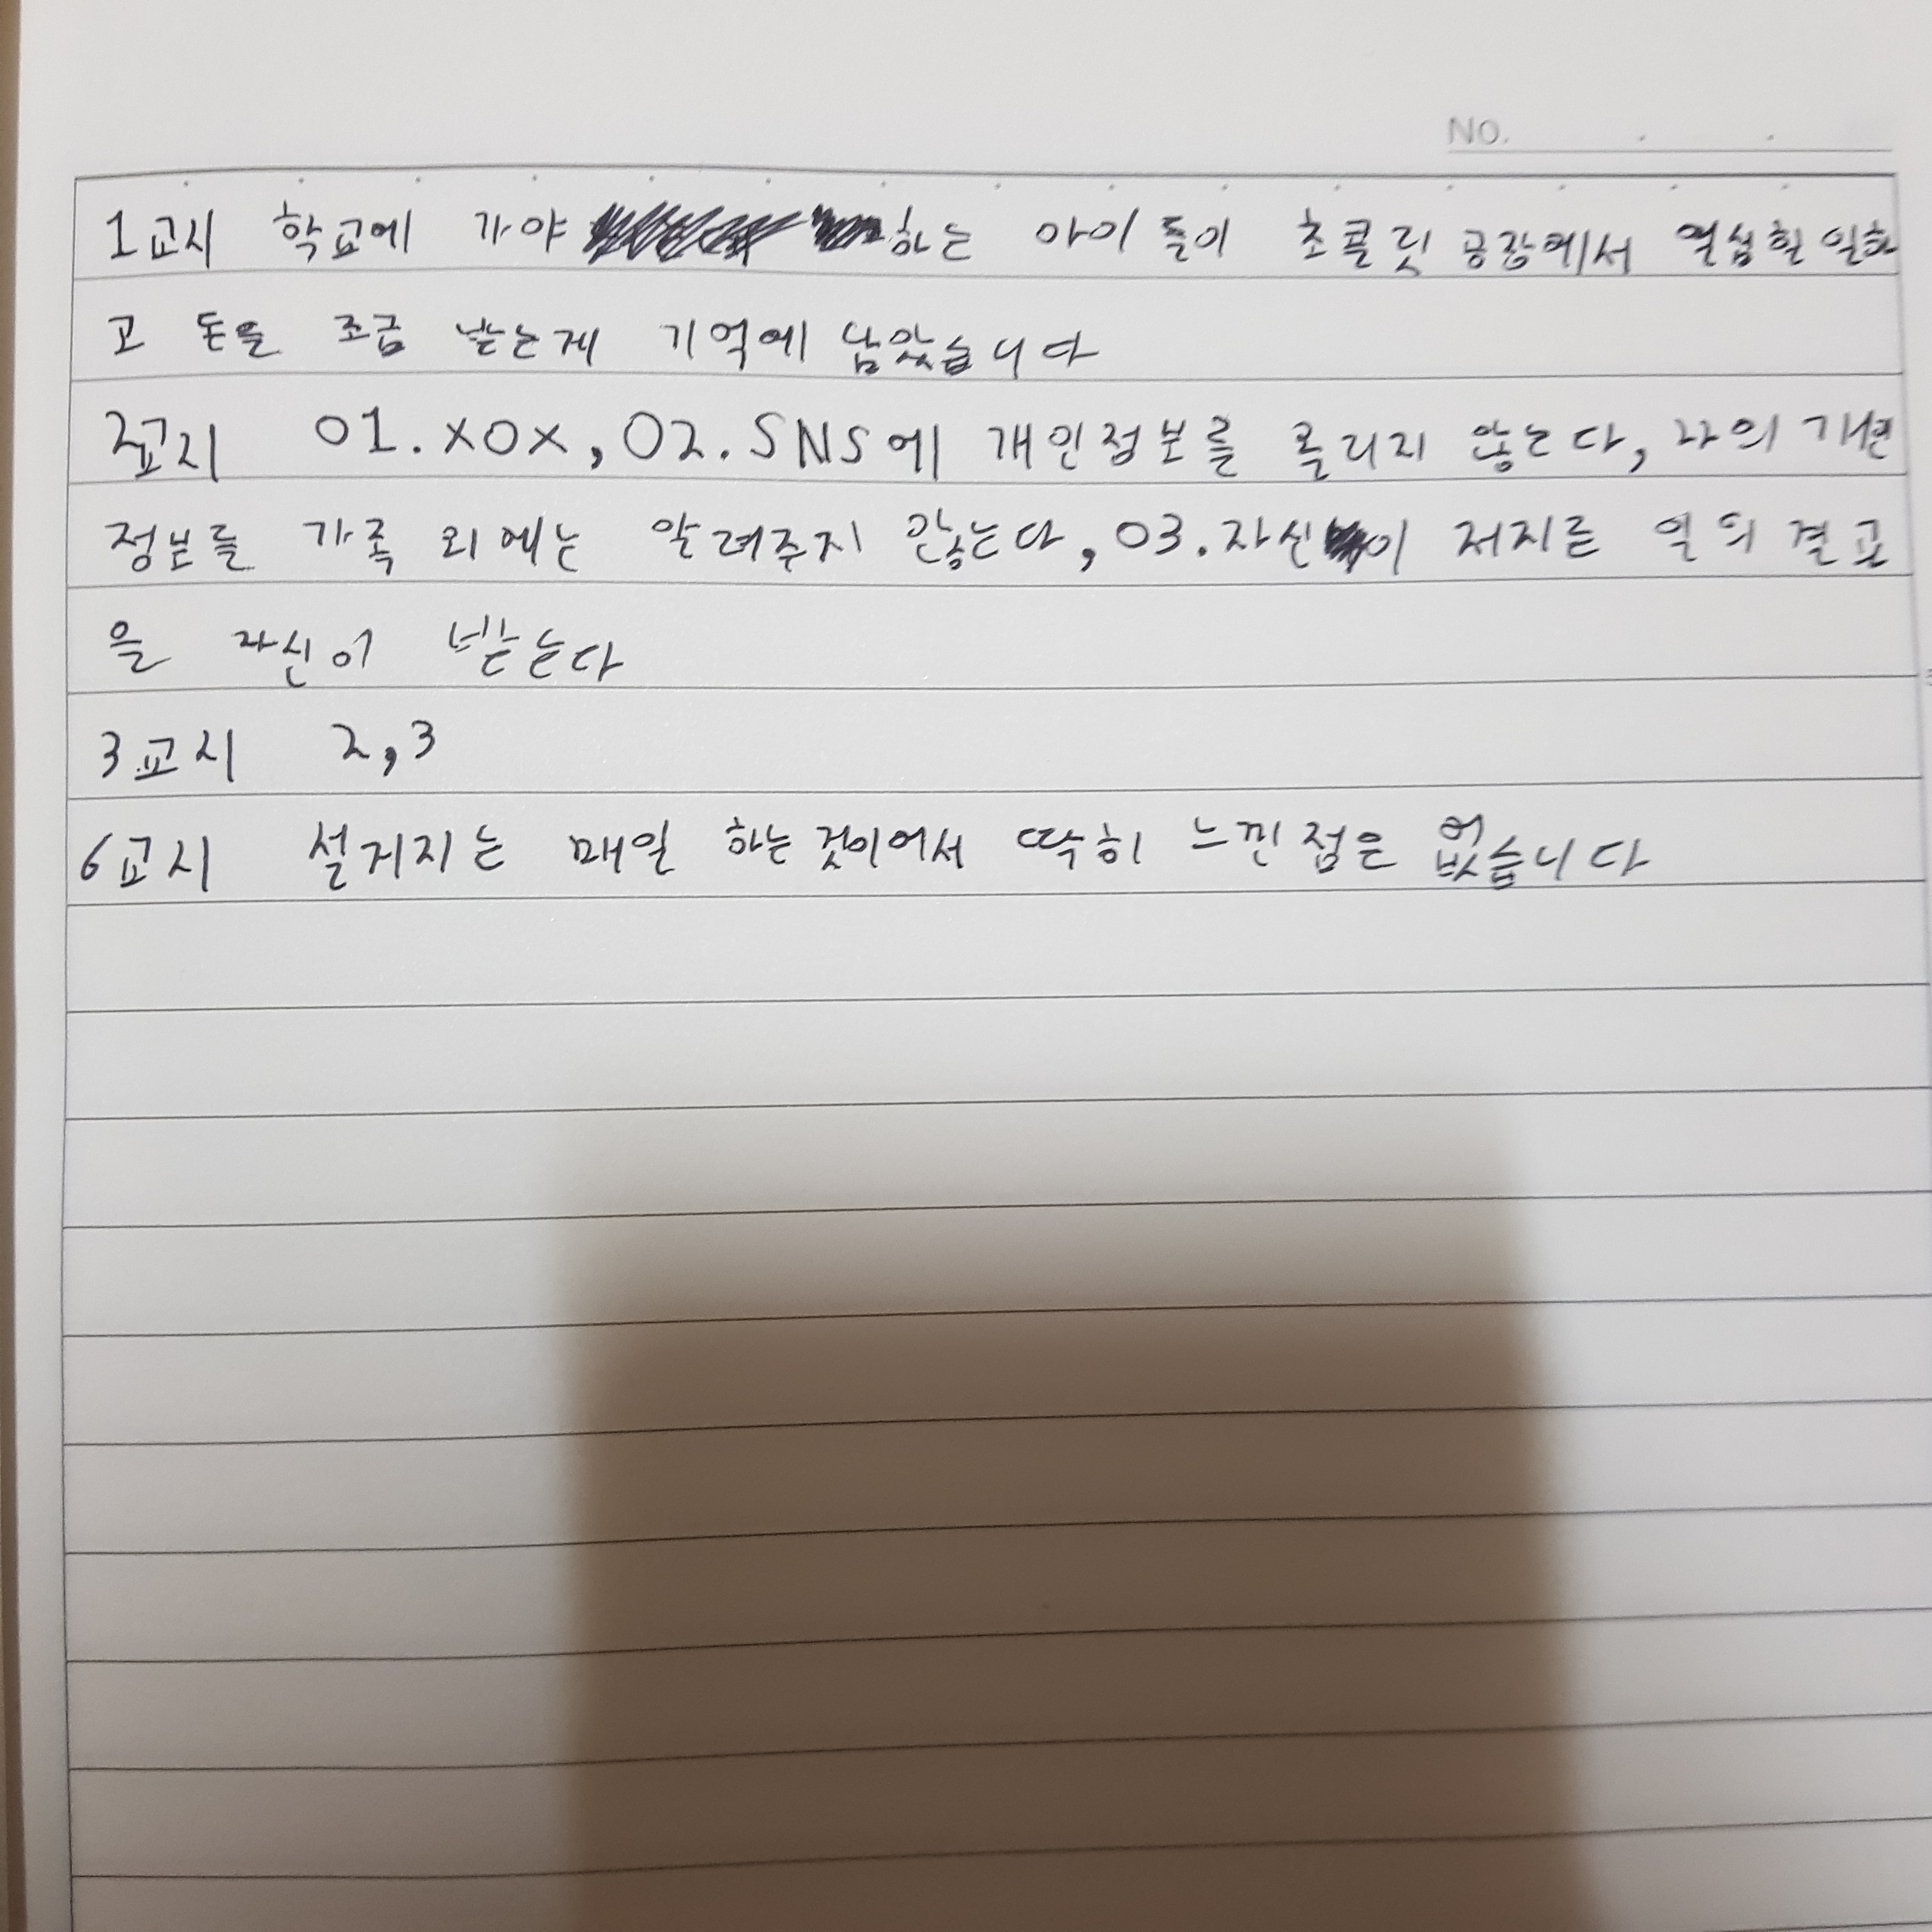 NO.
1교시 학교에 가야 하는 아이들이 초콜릿 공장에서 열심힐 일하
고 돈을 조금 받는게 기억에 남았습니다
2교시 01.xox, 02.SNS에 개인정보를 올리지 않는다, 나의 개인
정보를 가족 외에는 알려주지 않는다, 03.자신이 저지른 일의 결고
을 자신이 받는다
3교시 2,3
6교시 설거지는 매일 하는것이어서 딱히 느낀점은 없습니다